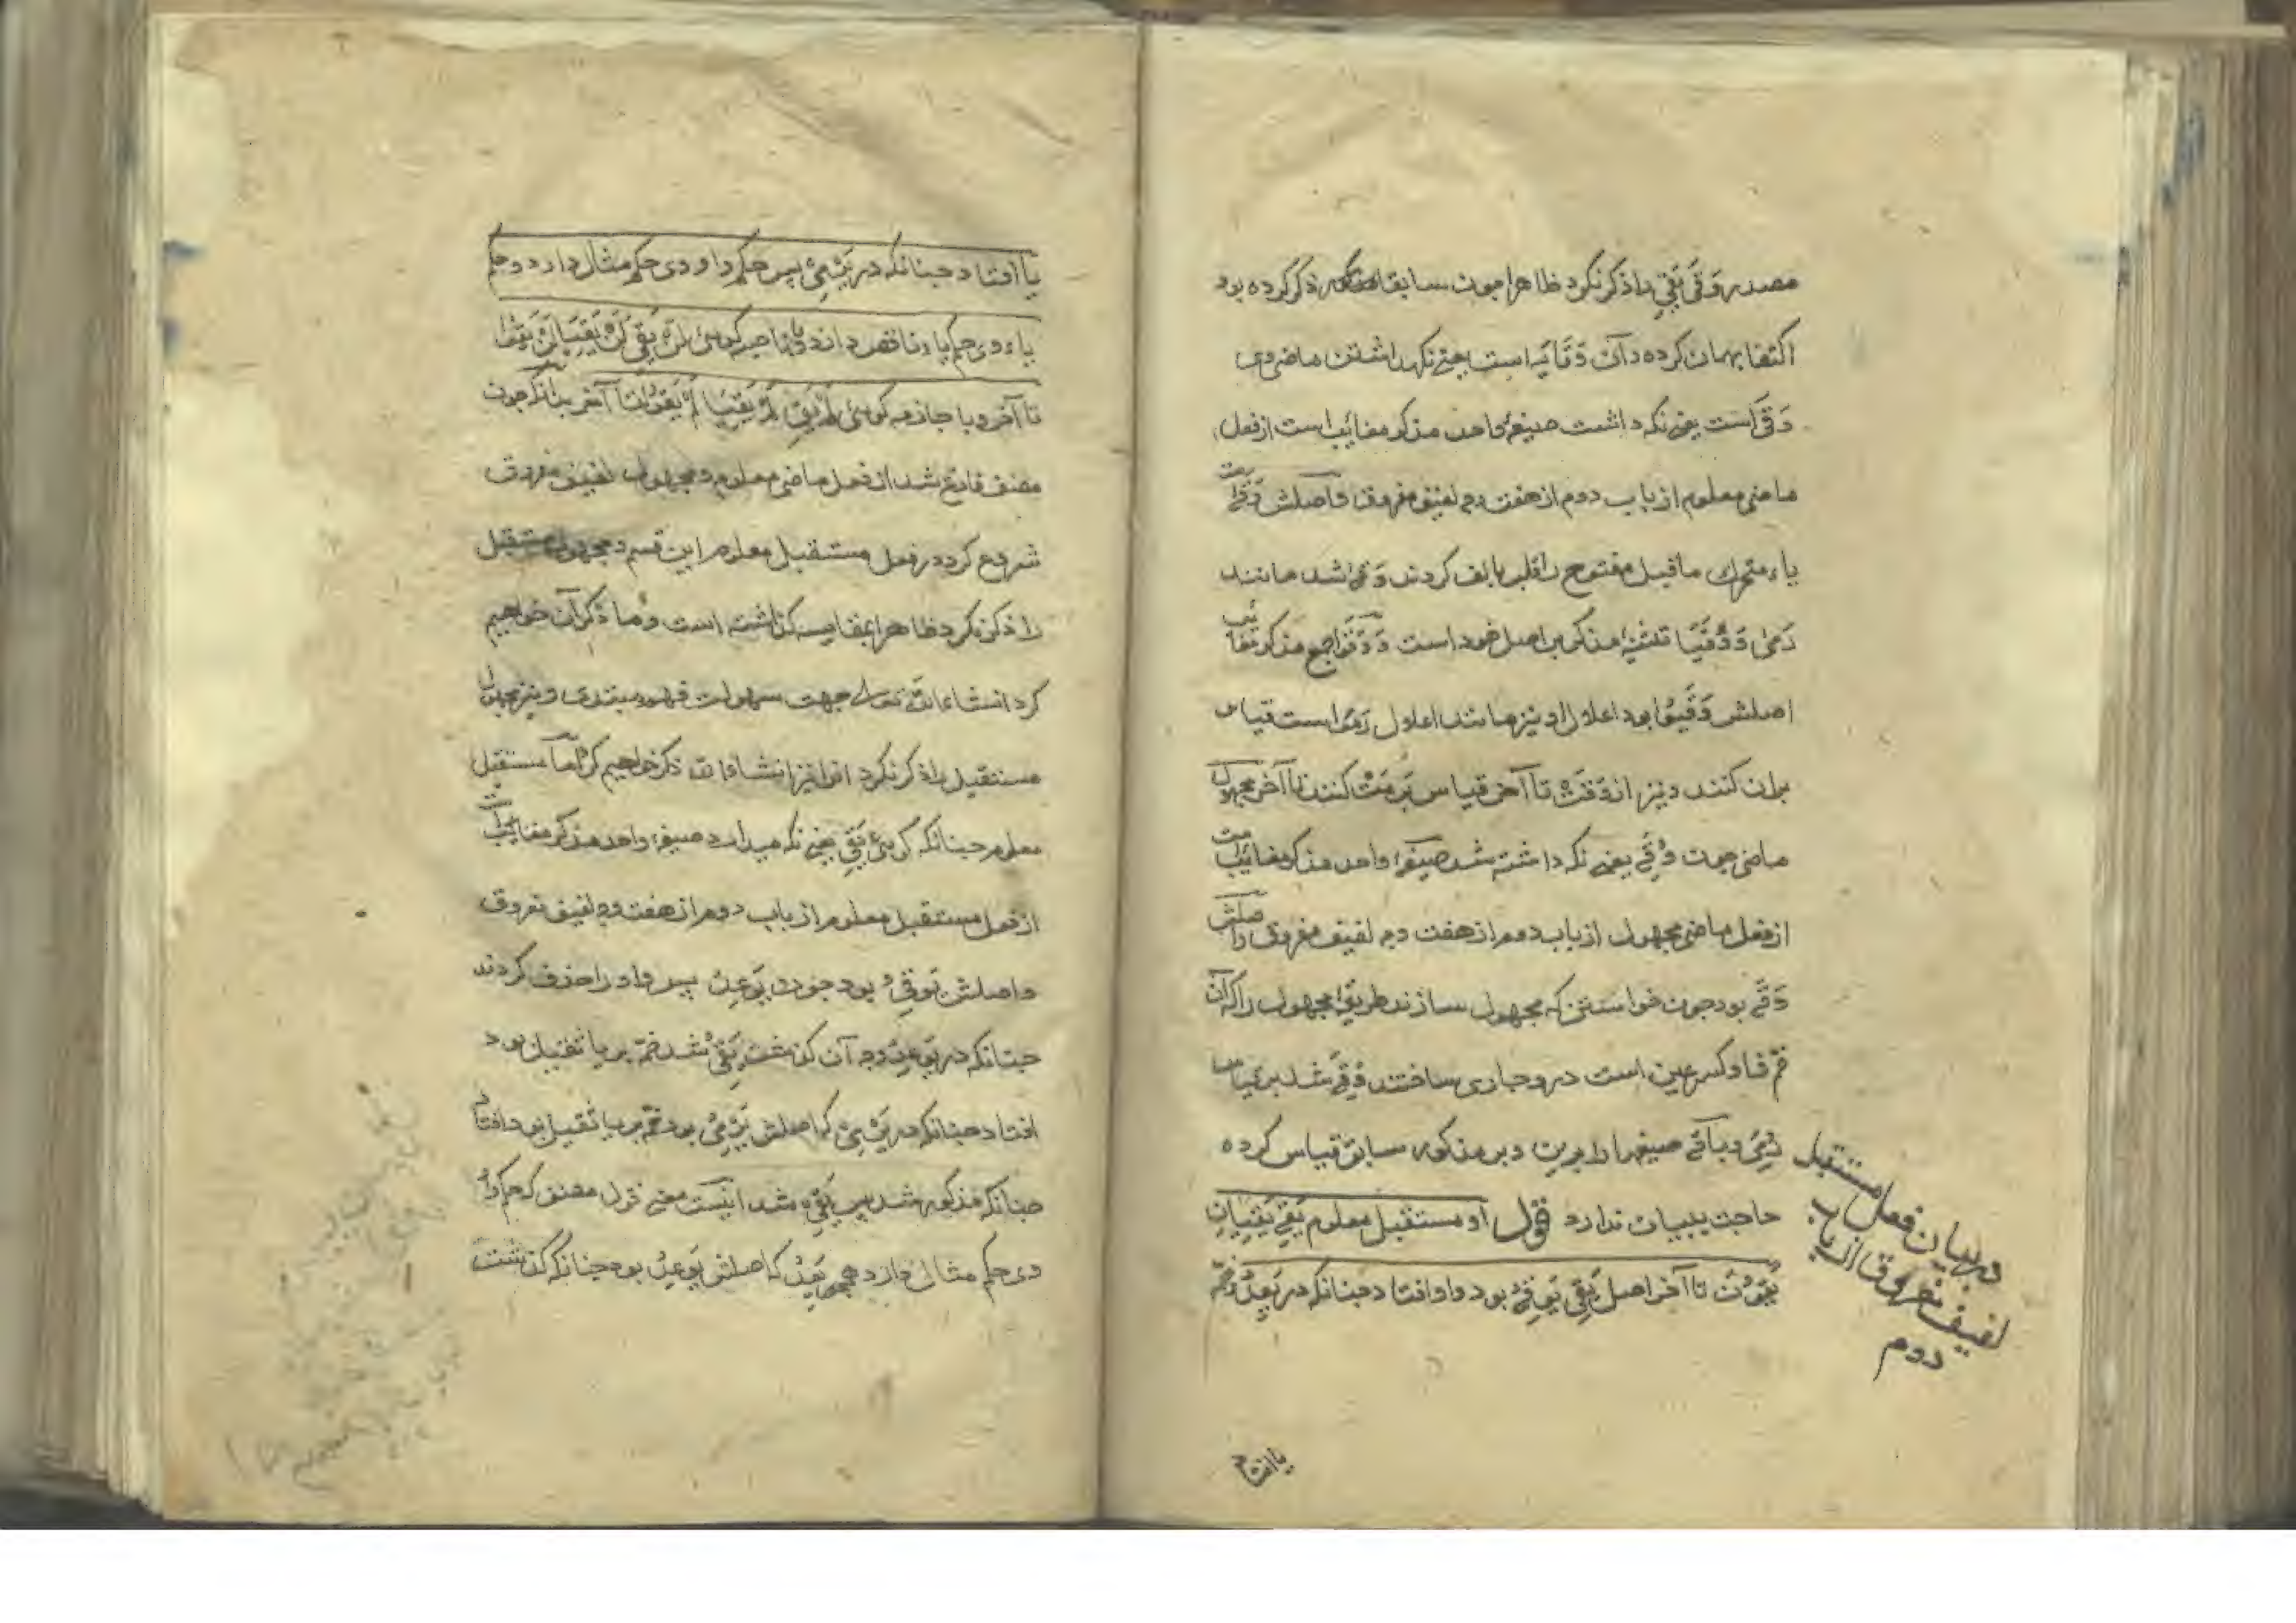 مصدر وَقَى يَقِي را ذکر نکرد ظاهرا چون سابقا ذکر کرده بود
اکتفا بهمان کرده و آن وقایه است بمعنی نکهداشتن ماضی وی
وَقَى است یعنی نکه داشت صیغهٔ واحد مذکر مغایب است از فعل
ماضی معلوم از باب دوم از هفت وجه لفیف مفروق و اصلش وَقَیَ بود
یاء متحرک ماقبل مفتوح را قلب بالف کردند وَقَى شد مانند
رَمَى وَ وَقَیَا تثنیهٔ مذکر بر اصل خود است وَ وَقَوا جمع مذکر مغایب
اصلش وَقَیُوا بود اعلال او نیز مانند اعلال رَمَوا است قیاس
بران کنند و نیز از وَقَتْ تا آخر قیاس بر رَمَتْ کنند تا آخر مجهول
ماضی چون وُقِیَ یعنی نکه داشته شد صیغهٔ واحد مذکر مغایب است
از فعل ماضی مجهول از باب دوم از هفت وجه لفیف مفروق و اصلش
وَقَیَ بود چون خواستند که مجهول سازند طریق مجهول را که آن
ضم فا و کسر عین است درو جاری ساختند وُقِیَ شد بر قیاس
رُمِیَ و باقی صیغها را برین و بر مذکور سابق قیاس کرده
حاجت ببیان ندارد قول او مستقبل معلوم یَقِی یَقِیَانِ
یَقُونَ تا آخر اصل یَقِی یَوْقِیُ بود واو افتاد چنانکه در یَعِدُ و ضمه
در بیان فعل مستقبل
لفیف مفروق از باب
دوم
یا افتاد
یا افتاد چنانکه در یَرْمِیُ پس حکم واو وی حکم مثال دارد و حکم
یاء وی حکم یاء ناقص دارد و با ناصبه کوئی لَنْ یَقِیَ لَنْ یَقِیَا لَنْ یَقُوا
تا آخر و با جازمه کوئی لَمْ یَقِ لَمْ یَقِیَا لَمْ یَقُوا تا آخر بدانکه چون
مصنف فارغ شد از فعل ماضی معلوم و مجهول لفیف مفروق
شروع کرد در فعل مستقبل معلوم این قسم و مجهول مستقبل
را ذکر نکرد ظاهرا بمقایسه کذاشته است و ما ذکر آن خواهیم
کرد انشاء الله تعالی جهت سهولت فهم مبتدی و نیز مجهول
مستقبل را ذکر نکرد انرا نیز انشاء الله ذکر خواهیم کرد اما مستقبل
معلوم چنانکه کوئی یَقِی یعنی نکه میدارد صیغهٔ واحد مذکر مغایب است
از فعل مستقبل معلوم از باب دوم از هفت وجه لفیف مفروق
و اصلش یَوْقِیُ بود چون یَوْعِدُ پس واو را حذف کردند
چنانکه در یَوْعِدُ وجه آن کذشت یَقِیُ شد ضمه بر یا ثقیل بود
افتاد چنانکه در یَرْمِی که اصلش یَرْمِیُ بود ضمه بر یا ثقیل بود افتاد
چنانکه مذکور شد پس یَقِی شد اینست معنی قول مصنف که حکم واو
وی حکم مثال دارد همچو یَعِدُ که اصلش یَوْعِدُ بود چنانکه کذشت